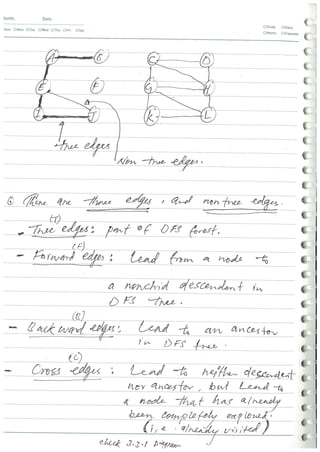 Date:
A B C D
E F G H
I J K L
tree edges
Non tree edges.
There are three edges, and non tree edges.
(T)
- Tree edges: part of DFS forest.
(F)
- Forward edges: Lead from a node to
a nonchid descendant in
DFS tree.
(B)
- Backward edges: Lead to an ancestor
in DFS tree.
(C)
- Cross edges: Lead to neither descendent
nor ancestor, but Lead to
a node that has already
been completely explored.
(i,e. already visited)
check 3.3.1 Diagram